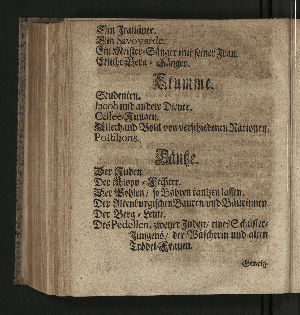 Ein Italiäner.
Ein Savoyarde.
Ein Meister-Sänger mit seiner Frau.
Etliche Berg-Sänger.
Stumme.
Studenten.
Jacob und andere Diener.
Caffee-Jungen.
Allerhand Volck von verschiedenen Nationen.
Postilions.
Täntze.
Der Juden.
Der Fechter.
Der Pohlen / so Bähren tantzen lassen.
Der Altenburgischen Bauren und Bäurinnen.
Der Berg-Leute.
Des Pedellen, zweyer Juden / eines Schuster-
Jungens / der Wäscherin und alten
Trödel-Frauen.
Geneig-